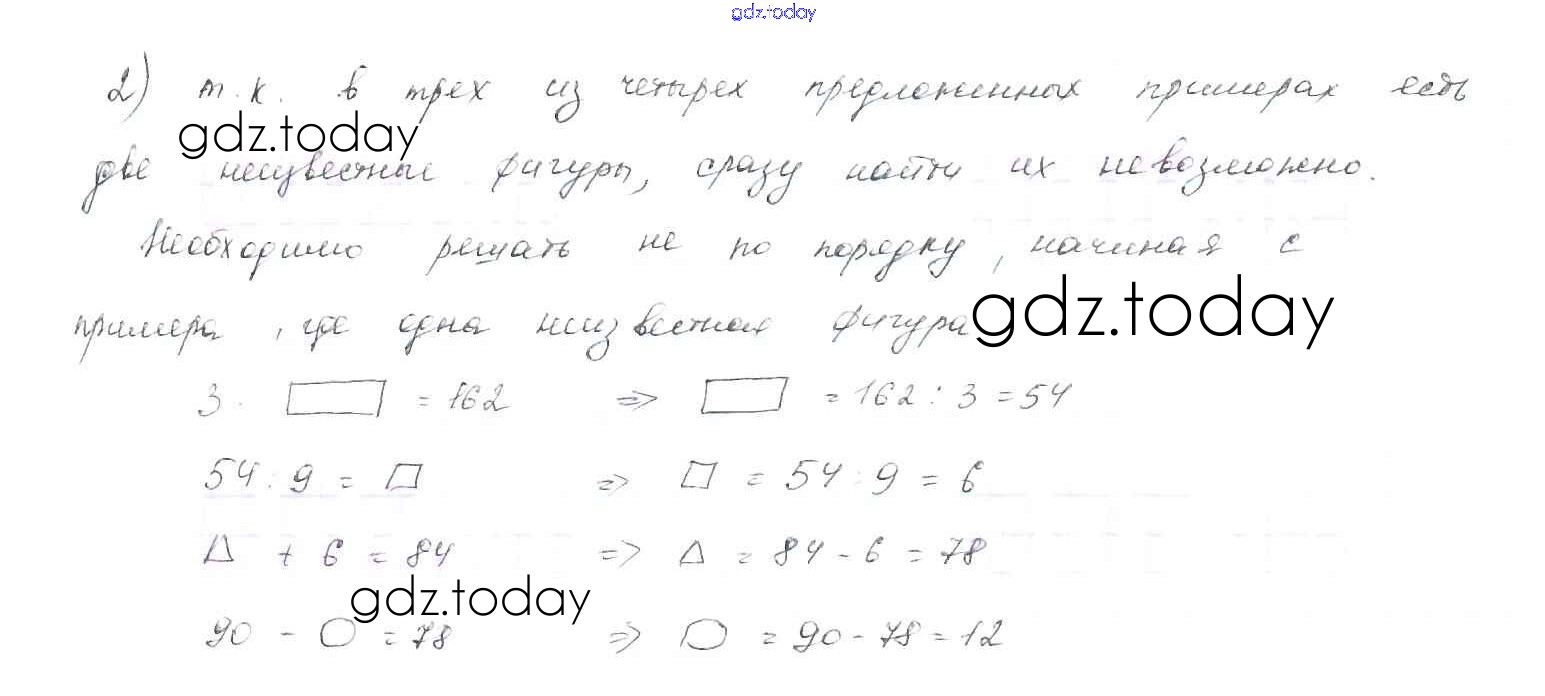 gdz.today
2) т.к. в трех из четырех предложенных примерах есть
gdz.today
две неизвестные фигуры, сразу найти их невозможно.
Необходимо решать не по порядку, начиная с
примера, где одна неизвестная фигура
gdz.today
3 · ▭ = 162 => ▭ = 162 : 3 = 54
54 : 9 = □ => □ = 54 : 9 = 6
△ + 6 = 84 => △ = 84 - 6 = 78
gdz.today
90 - ○ = 78 => ○ = 90 - 78 = 12